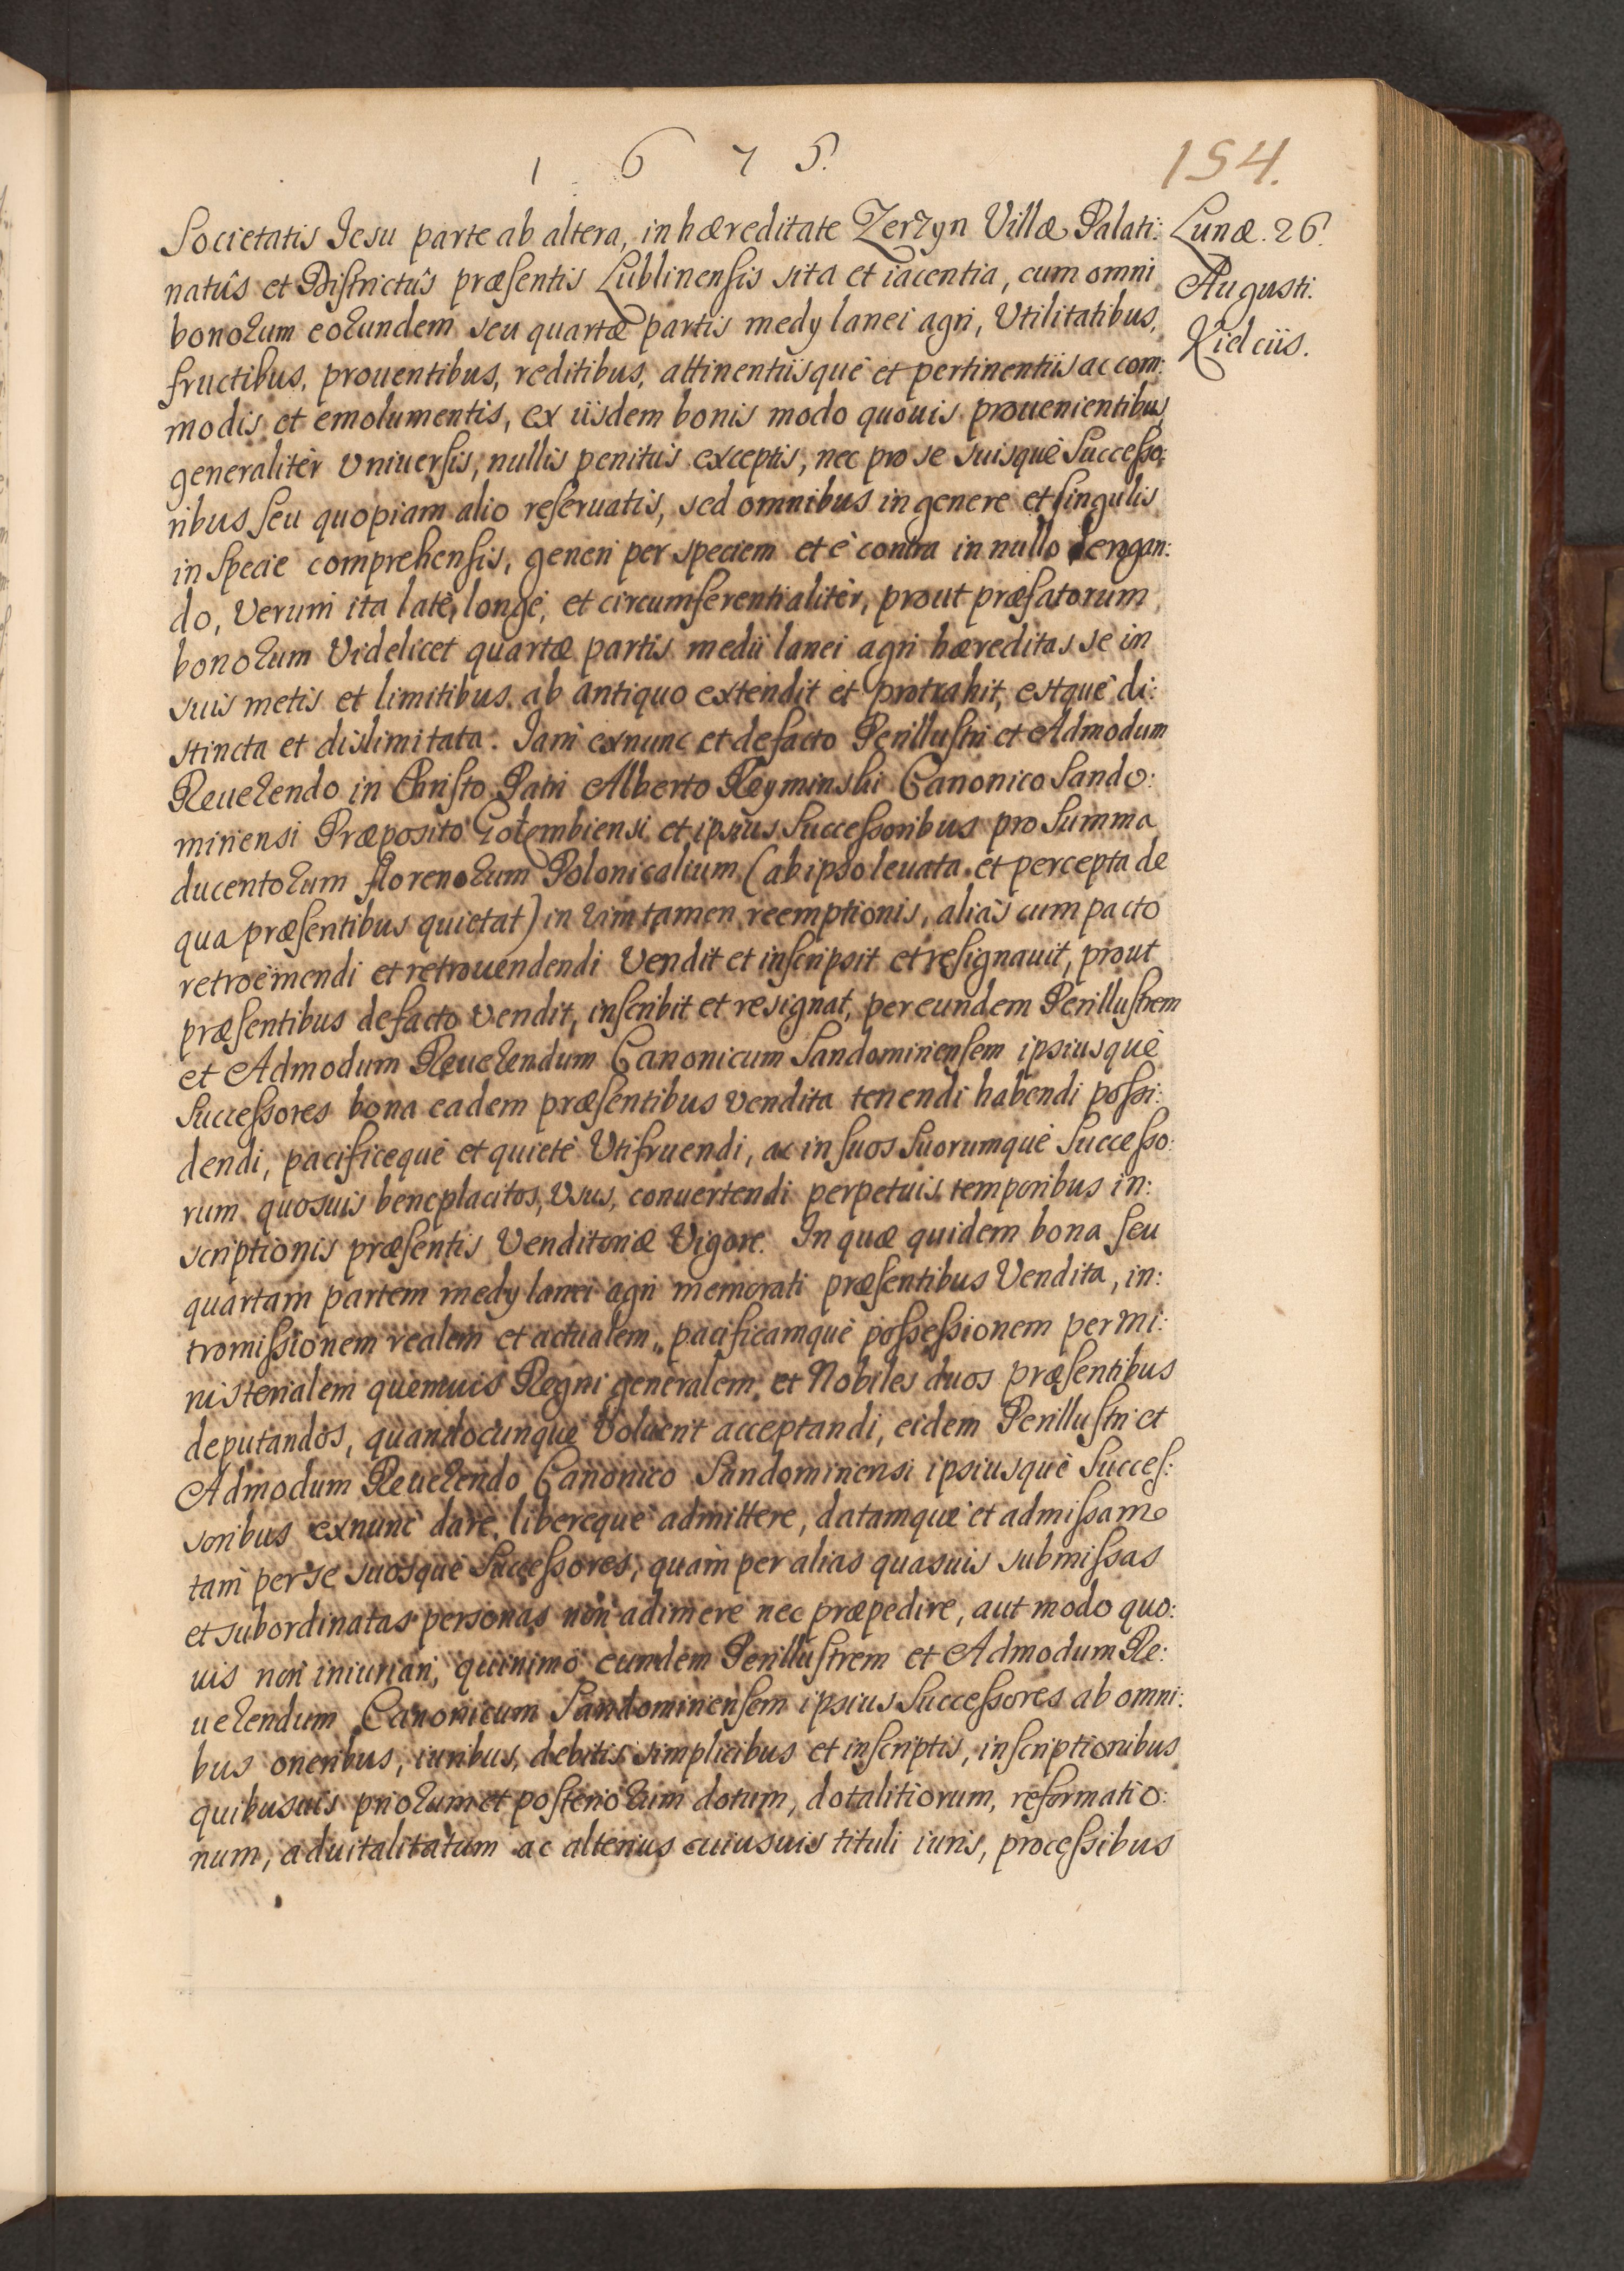 1 6 7 5.
154.
Societatis Jesu parte ab altera, in hæreditate Zerzyn Villæ Palati:
natûs et Districtûs præsentis Lublinensis sita et iacentia, cum omni
bonorum eorundem seu quartæ partis medy lanei agri, Utilitatibus,
fructibus, prouentibus, reditibus, attinentiisquè et pertinentiis ac com:
modis et emolumentis, ex iisdem bonis modo quouis prouenientibus
generalitèr Vniuersis, nullis penitus exceptis, nec pro se suisquè Successo:
ribus seu quopiam alio reseruatis, sed omnibus in genere et singulis
in specie comprehensis, generi per speciem et è contra in nullo derogan:
do, Verum ita latè, longè, et circumferentialitèr, prout præfatorum
bonorum Videlicet quartæ partis medii lanei agri hæreditas se in
suis metis et limitibus ab antiquo extendit et protrahit, estquè di:
stincta et dislimitata. Iam exnunc et defacto Perillustri et Admodum
Reuerendo in Christo Patri Alberto Reyminski Canonico Sando:
miriensi Præposito Gołembiensi et ipsius Successoribus pro Summa
ducentorum florenorum Polonicalium (ab ipso leuata et percepta de
qua præsentibus quietat) in vim tamen reemptionis, aliàs cum pacto
retroèmendi et retrouendendi Vendit et inscripsit et resignauit, prout
præsentibus defacto vendit, inscribit et resignat, per eundem Perillustrem
et Admodum Reuerendum Canonicum Sandomiriensem ipsiusquè
Successores bona eadem præsentibus vendita tenendi habendi possi:
dendi, pacificequè et quietè Utifruendi, ac in suos Suorumquè Successo:
rum quosuis beneplacitos, Vsus, conuertendi perpetuis temporibus in:
scriptionis præsentis Venditoriæ Vigore. In quæ quidem bona seu
quartam partem medy lanei agri memorati præsentibus Vendita, in:
tromissionem realem et actualem, pacificamquè possessionem per Mi:
nisterialem quemuis Regni generalem, et Nobiles duos præsentibus
deputandos, quandocunquè Voluerit acceptandi, eidem Perillustri et
Admodum Reuerendo Canonico Sandomiriensi ipsiusquè Succes:
soribus exnunc dare, liberequè admittere, datamquè et admissam
tam per se suosquè Successores, quam per alias quasuis submissas
et subordinatas personas non adimere nec præpedire, aut modo quo:
uis non iniuriari, quinimo eundem Perillustrem et Admodum Re:
uerendum Canonicum Sandomiriensem ipsius Successores ab omni:
bus oneribus, iuribus, debitis simplicibus et inscriptis, inscriptionibus
quibusuis priorum et posteriorum dotum, dotalitiorum, reformatio:
num, aduitalitatum ac alterius cuiusuis tituli iuris, processibus
Lunæ. 26.
Augusti.
Kielciis.